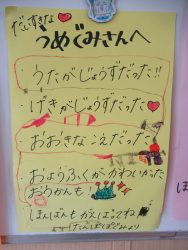 だいすきな
うめぐみさんへ
・うたがじょうずだった!!
・げきがじょうずだった
・おおきなこえだった
・おようふくがかわいかった
おうかんも!
ほんばんもがんばってね